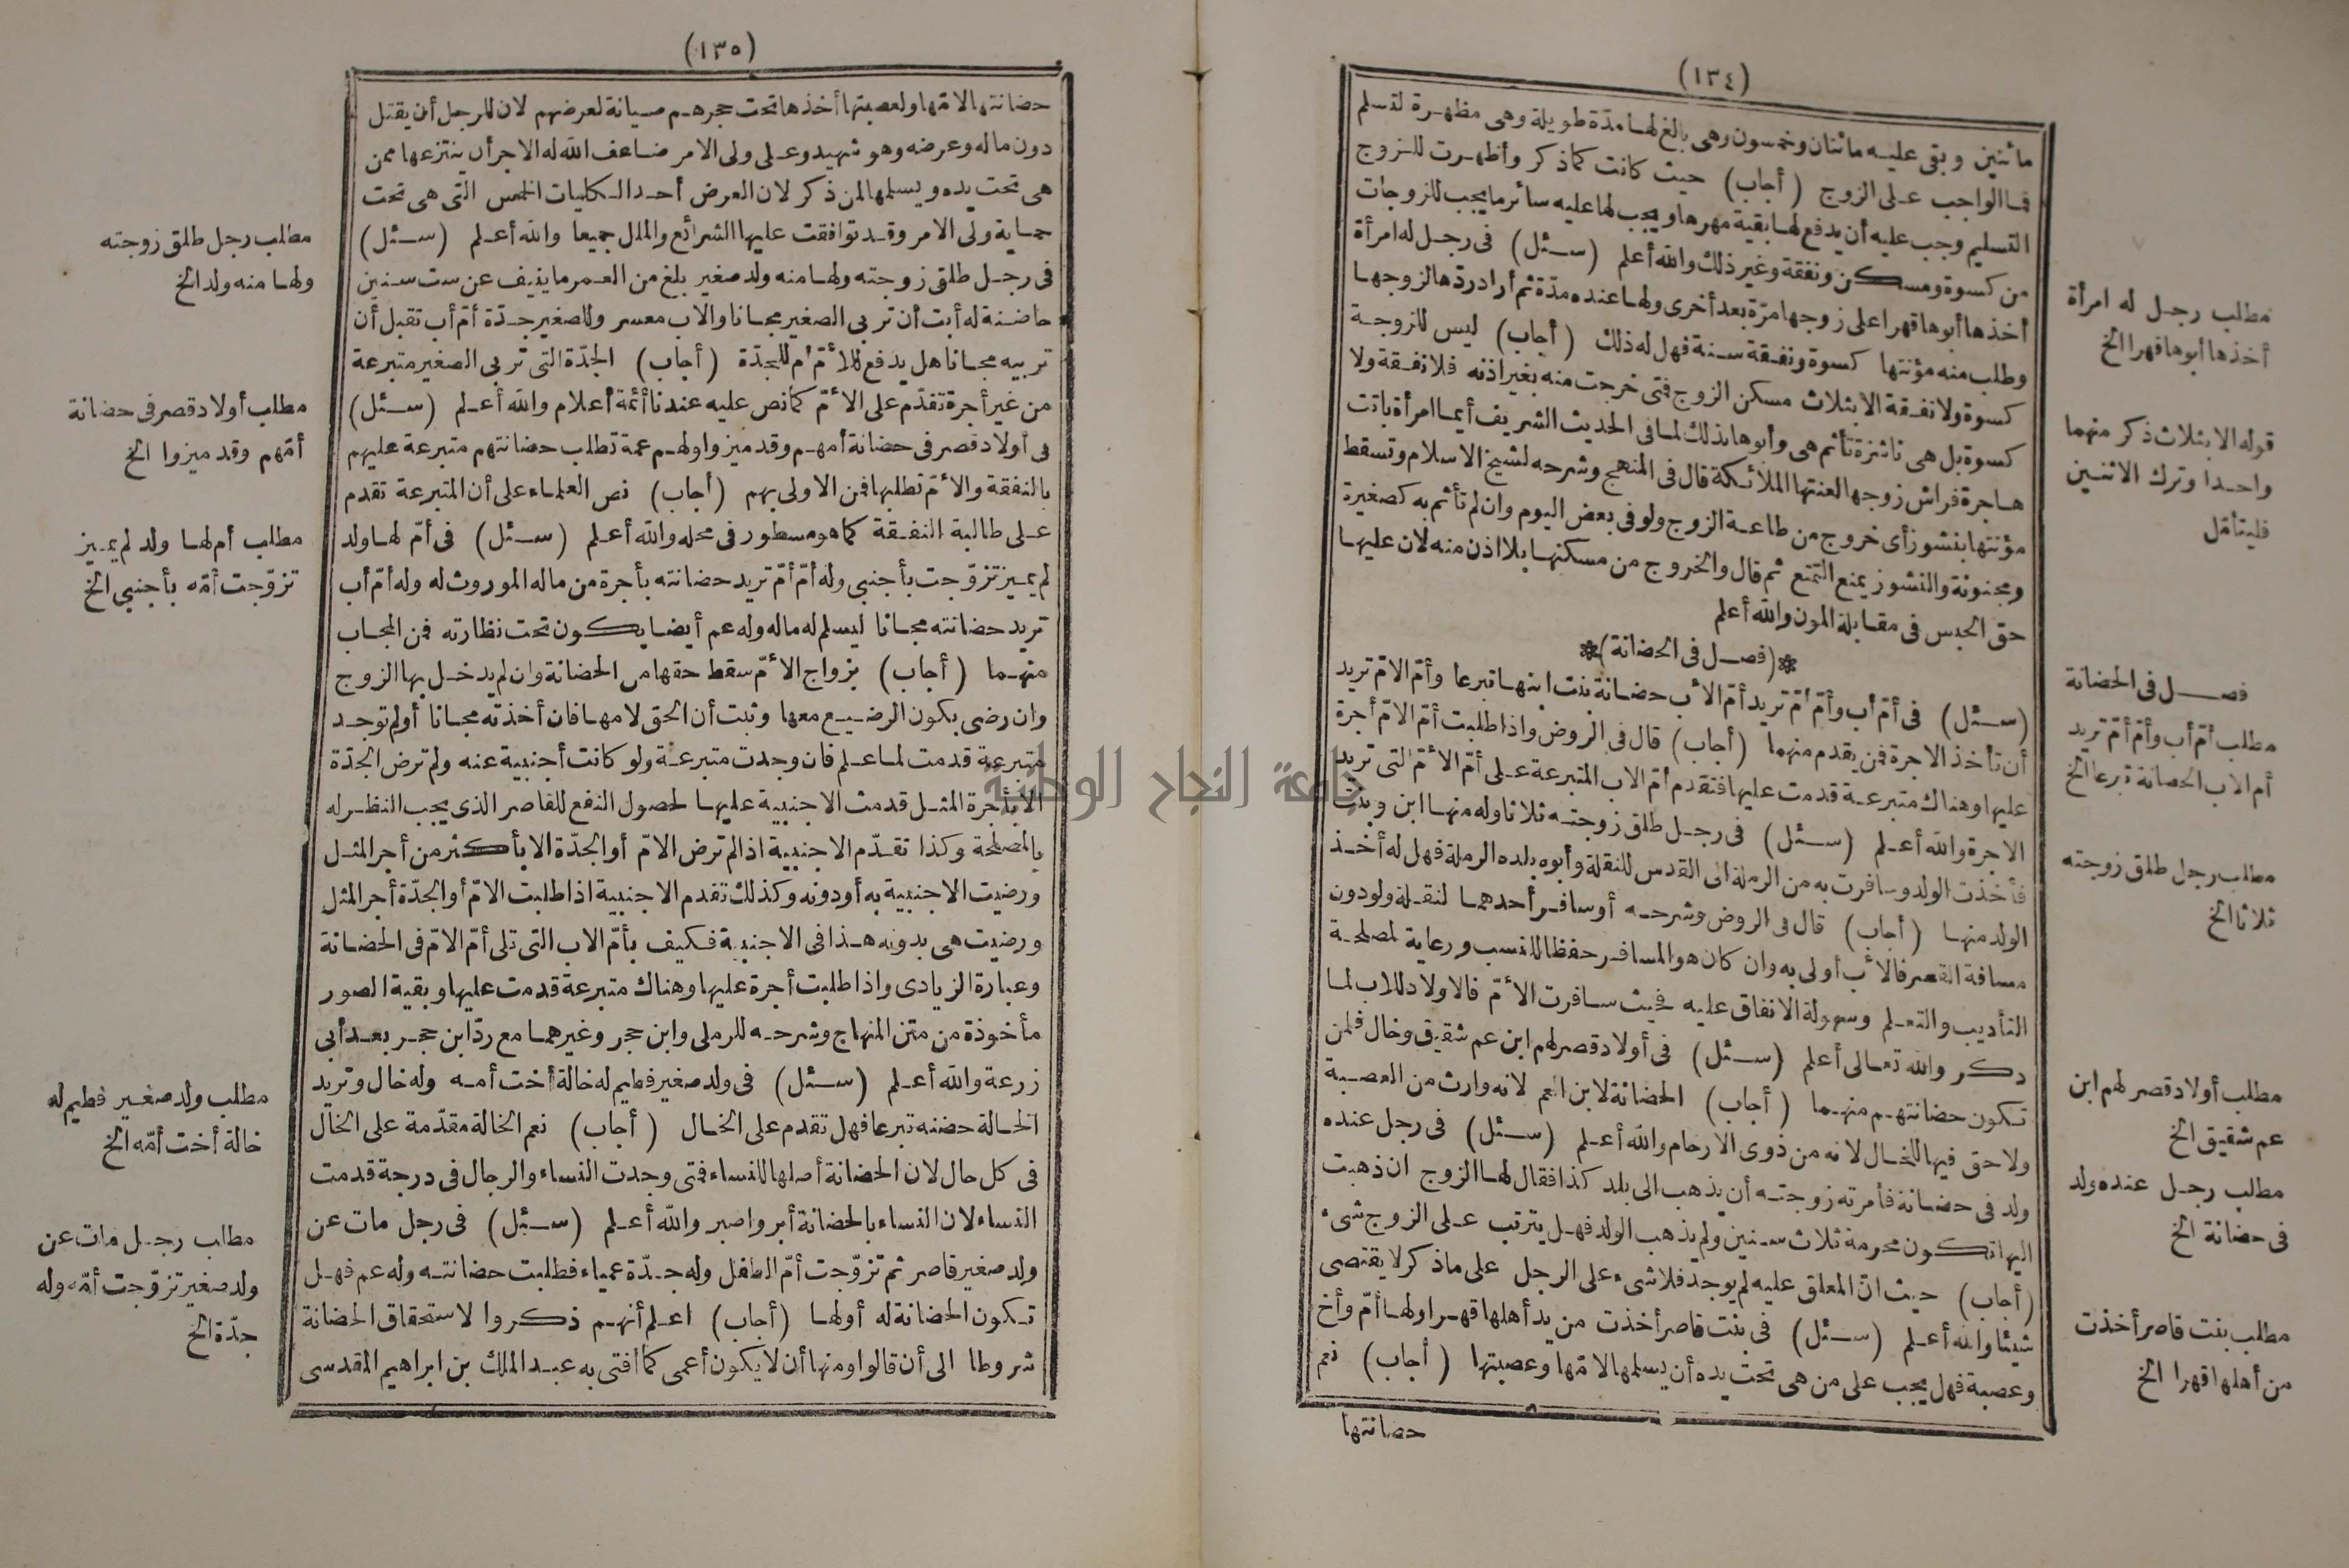 (١٣٤)
مائتين وبقى عليه مائتان وخمسون وهى بالغ لها مدّة طويلة وهى مظهرة لتسلم
فما الواجب على الزوج (أجاب) حيث كانت كما ذكر وأظهرت للزوج
التسليم وجب عليه أن يدفع لها بقية مهرها ويجب لها عليه سائر ما يجب للزوجات
من كسوة ومسكن ونفقة وغير ذلك والله أعلم (سئل) فى رجل له امرأة
أخذها أبوها قهرا على زوجها مرّة بعد أخرى ولها عنده مدّة ثم أراد ردّها لزوجها
وطلب منه مؤنتها كسوة ونفقة سنة فهل له ذلك (أجاب) ليس للزوجة
كسوة ولا نفقة الا بثلاث مسكن الزوج فتى خرجت منه بغير اذنه فلا نفقة ولا
كسوة بل هى ناشزة تأثم هى وأبوها بذلك لما فى الحديث الشريف أيما امرأة باتت
هاجرة فراش زوجها لعنتها الملائكة قال فى المنهج وشرحه لشيخ الاسلام وتسقط
مؤنتها بنشوز أى خروج من طاعة الزوج ولو فى بعض اليوم وان لم تأثم به كصغيرة
ومجنونة والنشوز يمنع التمتع ثم قال والخروج من مسكنها بلا اذن منه لان عليها
حق الحبس فى مقابلة المون والله أعلم
*(فصل فى الحضانة)*
(سئل) فى أمّ أب وأمّ أمّ تريد أمّ الأب حضانة بنت ابنها تبرعا وأمّ الامّ تريد
أن تأخذ الاجرة فمن يقدم منهما (أجاب) قال فى الروض واذا طلبت أمّ الامّ أجرة
عليها وهناك متبرعة قدمت عليها فتقدم أمّ الاب المتبرعة على أمّ الأمّ التى تريد
الاجرة والله أعلم (سئل) فى رجل طلق زوجته ثلاثا وله منها ابن وبنت
فأخذت الولد وسافرت به من الرملة الى القدس للنقلة وأبوه بلده الرملة فهل له أخذ
الولد منها (أجاب) قال فى الروض وشرحه أو سافر أحدهما لنقلة ولو دون
مسافة القصر فالأب أولى به وان كان هو المسافر حفظا للنسب ورعاية لمصلحة
التأديب والتعلم وسهولة الانفاق عليه فحيث سافرت الأمّ فالاولاد للاب لما
ذكر والله تعالى أعلم (سئل) فى أولاد قصر لهم ابن عم شقيق وخال فلمن
تكون حضانتهم منهما (أجاب) الحضانة لابن العم لانه وارث من العصبة
ولا حق فيها للخال لانه من ذوى الارحام والله أعلم (سئل) فى رجل عنده
ولد فى حضانة فأمرته زوجته أن يذهب الى بلد كذا فقال لها الزوج ان ذهبت
اليها تكون محرمة ثلاث سنين ولم يذهب الولد فهل يترتب على الزوج شىء
(أجاب) حيث انّ المعلق عليه لم يوجد فلا شىء على الرجل على ماذكر لا يقتضى
شيئا والله أعلم (سئل) فى بنت قاصر أخذت من يد أهلها قهرا ولها أمّ وأخ
وعصبة فهل يجب على من هى تحت يده أن يسلمها لامّها وعصبتها (أجاب) نعم
حضانتها
مطلب رجل له امرأة
أخذها أبوها قهرا الخ
قوله الا بثلاث ذكر منهما
واحدا وترك الاثنين
فليتأمل
فصل فى الحضانة
مطلب أمّ أب وأمّ أمّ تريد
أم الاب الحضانة تبرعا الخ
مطلب رجل طلق زوجته
ثلاثا الخ
مطلب أولاد قصر لهم ابن
عم شقيق الخ
مطلب رجل عنده ولد
فى حضانة الخ
مطلب بنت قاصر أخذت
من أهلها قهرا الخ
(١٣٥)
حضانتها لامّها ولعصبتها أخذها تحت حجرهم صيانة لعرضهم لان للرجل أن يقتل
دون ماله وعرضه وهو شهيد وعلى ولى الامر ضاعف الله له الاجر أن ينتزعها ممن
هى تحت يده ويسلمها لمن ذكر لان العرض أحد الكليات الخمس التى هى تحت
حماية ولى الامر وقد توافقت عليها الشرائع والملل جميعا والله أعلم (سئل)
فى رجل طلق زوجته ولها منه ولد صغير بلغ من العمر ما ينيف عن ست سنين
حاضنة له أبت أن تربى الصغير مجانا والاب معسر وللصغير جدّة أمّ أب تقبل أن
تربيه مجانا هل يدفع للأمّ أم للجدّة (أجاب) الجدّة التى تربى الصغير متبرعة
من غير أجرة تقدّم على الأمّ كما نص عليه عندنا أئمة أعلام والله أعلم (سئل)
فى أولاد قصر فى حضانة أمهم وقد ميزوا ولهم عمة تطلب حضانتهم متبرعة عليهم
بالنفقة والأمّ تطلبها فمن الاولى بهم (أجاب) نص العلماء على أن المتبرعة تقدم
على طالبة النفقة كما هو مسطور فى محله والله أعلم (سئل) فى أمّ لها ولد
لم يميز تزوّجت بأجنبى وله أمّ أمّ تريد حضانته بأجرة من ماله الموروث له وله أمّ أب
تريد حضانته مجانا ليسلم له ماله وله عم أيضا يكون تحت نظارته فمن المجاب
منهما (أجاب) بزواج الأمّ سقط حقها من الحضانة وان لم يدخل بها الزوج
وان رضى بكون الرضيع معها وثبت أن الحق لامها فان أخذته مجانا أو لم توجد
متبرعة قدمت لما علم فان وجدت متبرعة ولو كانت أجنبية عنه ولم ترض الجدّة
الا بأجرة المثل قدمت الاجنبية عليها لحصول النفع للقاصر الذى يجب النظر له
بالمصلحة وكذا تقدّم الاجنبية اذا لم ترض الامّ أو الجدّة الا بأكثر من أجر المثل
ورضيت الاجنبية به أو دونه وكذلك تقدم الاجنبية اذا طلبت الامّ أو الجدّة أجر المثل
ورضيت هى بدونه هذا فى الاجنبية فكيف بأمّ الاب التى تلى أمّ الامّ فى الحضانة
وعبارة الزيادى واذا طلبت أجرة عليها وهناك متبرعة قدمت عليها وبقية الصور
مأخوذة من متن المنهاج وشرحه للرملى وابن حجر وغيرهما مع ردّ ابن حجر بعد أبى
زرعة والله أعلم (سئل) فى ولد صغير فطيم له خالة أخت أمه وله خال وتريد
الخالة حضنه تبرعا فهل تقدم على الخال (أجاب) نعم الخالة مقدّمة على الخال
فى كل حال لان الحضانة أصلها للنساء فتى وجدت النساء والرجال فى درجة قدمت
النساء لان النساء بالحضانة أبر واصبر والله أعلم (سئل) فى رجل مات عن
ولد صغير قاصر ثم تزوّجت أمّ الطفل وله جدّة عمياء فطلبت حضانته وله عم فهل
تكون الحضانة له أو لها (أجاب) اعلم أنهم ذكروا لاستحقاق الحضانة
شروطا الى أن قالوا ومنها أن لا يكون أعمى كما أفتى به عبد الملك بن ابراهيم المقدسى
مطلب رجل طلق زوجته
ولها منه ولد الخ
مطلب أولاد قصر فى حضانة
أمّهم وقد ميزوا الخ
مطلب أم لها ولد لم يميز
تزوّجت أمّه بأجنبى الخ
مطلب ولد صغير فطيم له
خالة أخت أمّه الخ
مطلب رجل مات عن
ولد صغير تزوّجت أمّه وله
جدّة الخ
جامعة النجاح الوطنية